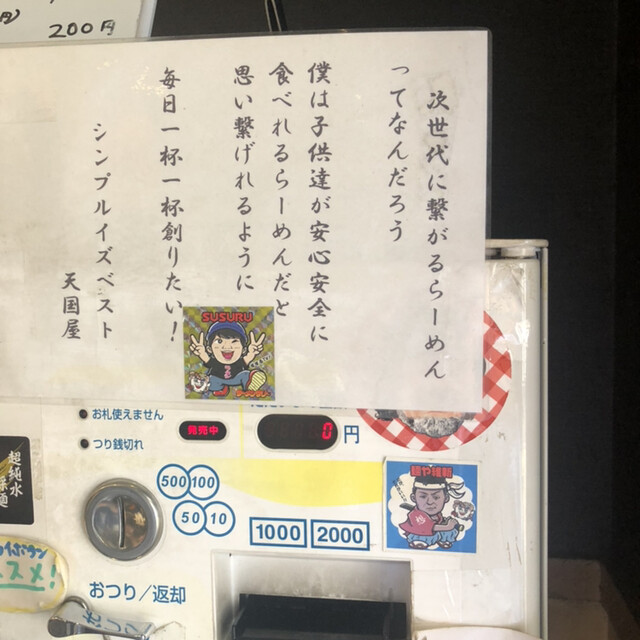 200円
次世代に繋がるらーめん
ってなんだろう
僕は子供達が安心安全に
食べれるらーめんだと
思い繋げれるように
毎日一杯一杯創りたい！
シンプルイズベスト
天国屋
SUSURU
お札使えません
つり銭切れ
発売中
0円
500 100
50 10
1000 2000
超純水
おつり／返却